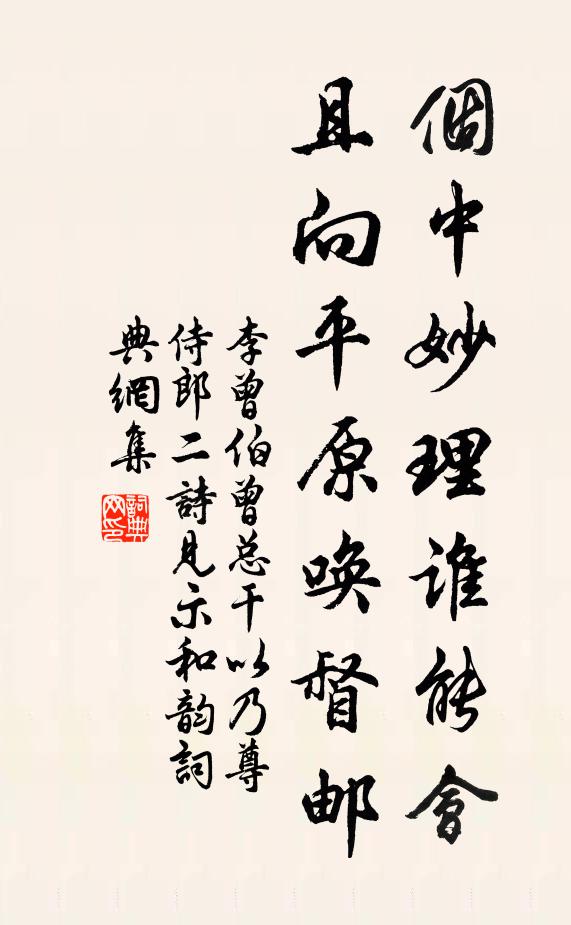 個中妙理誰能會
且向平原唤督邮
李曾伯曾总干以乃尊
侍郎二詩見示和韵詞
典網集
詞典
网印